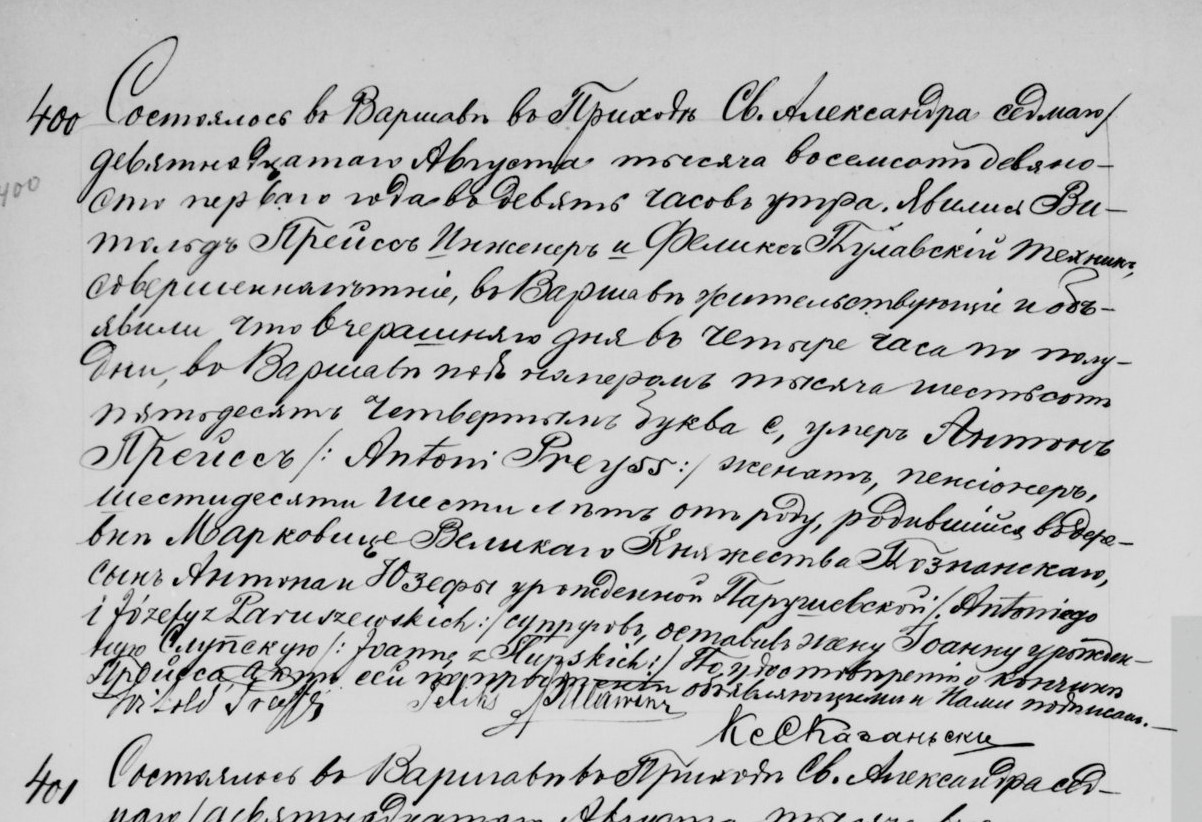 400 Состоялось въ Варшавѣ въ Приходѣ Св. Александра седмаго/
400
девятнадцатаго Августа тысяча восемьсотъ девяно-
сто перваго года въ девять часовъ утра. Явились Ви-
тольдъ Прейссъ Инженеръ и Феликсъ Пулавскій техникъ,
совершеннолѣтніе, въ Варшавѣ жительствующіе и объ-
явили что вчерашняго дня въ четыре часа по полу-
дни, въ Варшавѣ подъ номеромъ тысяча шестьсотъ
пятьдесятъ четвертымъ буква С, умеръ Антонъ
Прейссъ /: Antoni Preyss :/ женатъ, пенсіонеръ,
шестидесяти шести лѣтъ отъ роду, родившійся въ дере-
внѣ Марковице Великаго Княжества Познанскаго,
сынъ Антона и Юзефы урожденной Парушевской /: Antoniego
i Józefy z Paruszewskich :/ супруговъ, оставивъ жену Іоанну урожден-
ную Слупскую /: Joannę z Słupskich :/ По удостовѣреніи о кончинѣ
Прейсса Актъ сей по прочтеніи объявляющими и Нами подписанъ.—
Witold Preyss Feliks Puławski
Кс
401 Состоялось въ Варшавѣ въ Приходѣ Св. Александра сед-
маго / девятнадцатаго Августа тысяча